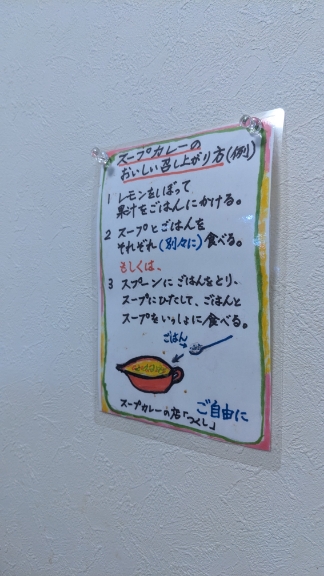 スープカレーの
おいしい召し上がり方(例)
1 レモンをしぼって
果汁をごはんにかける。
2 スープとごはんを
それぞれ(別々に)食べる。
もしくは、
3 スプーンにごはんをとり、
スープにひたして、ごはんと
スープをいっしょに食べる。
ごはん
スープカレーの店「つくし」
ご自由に